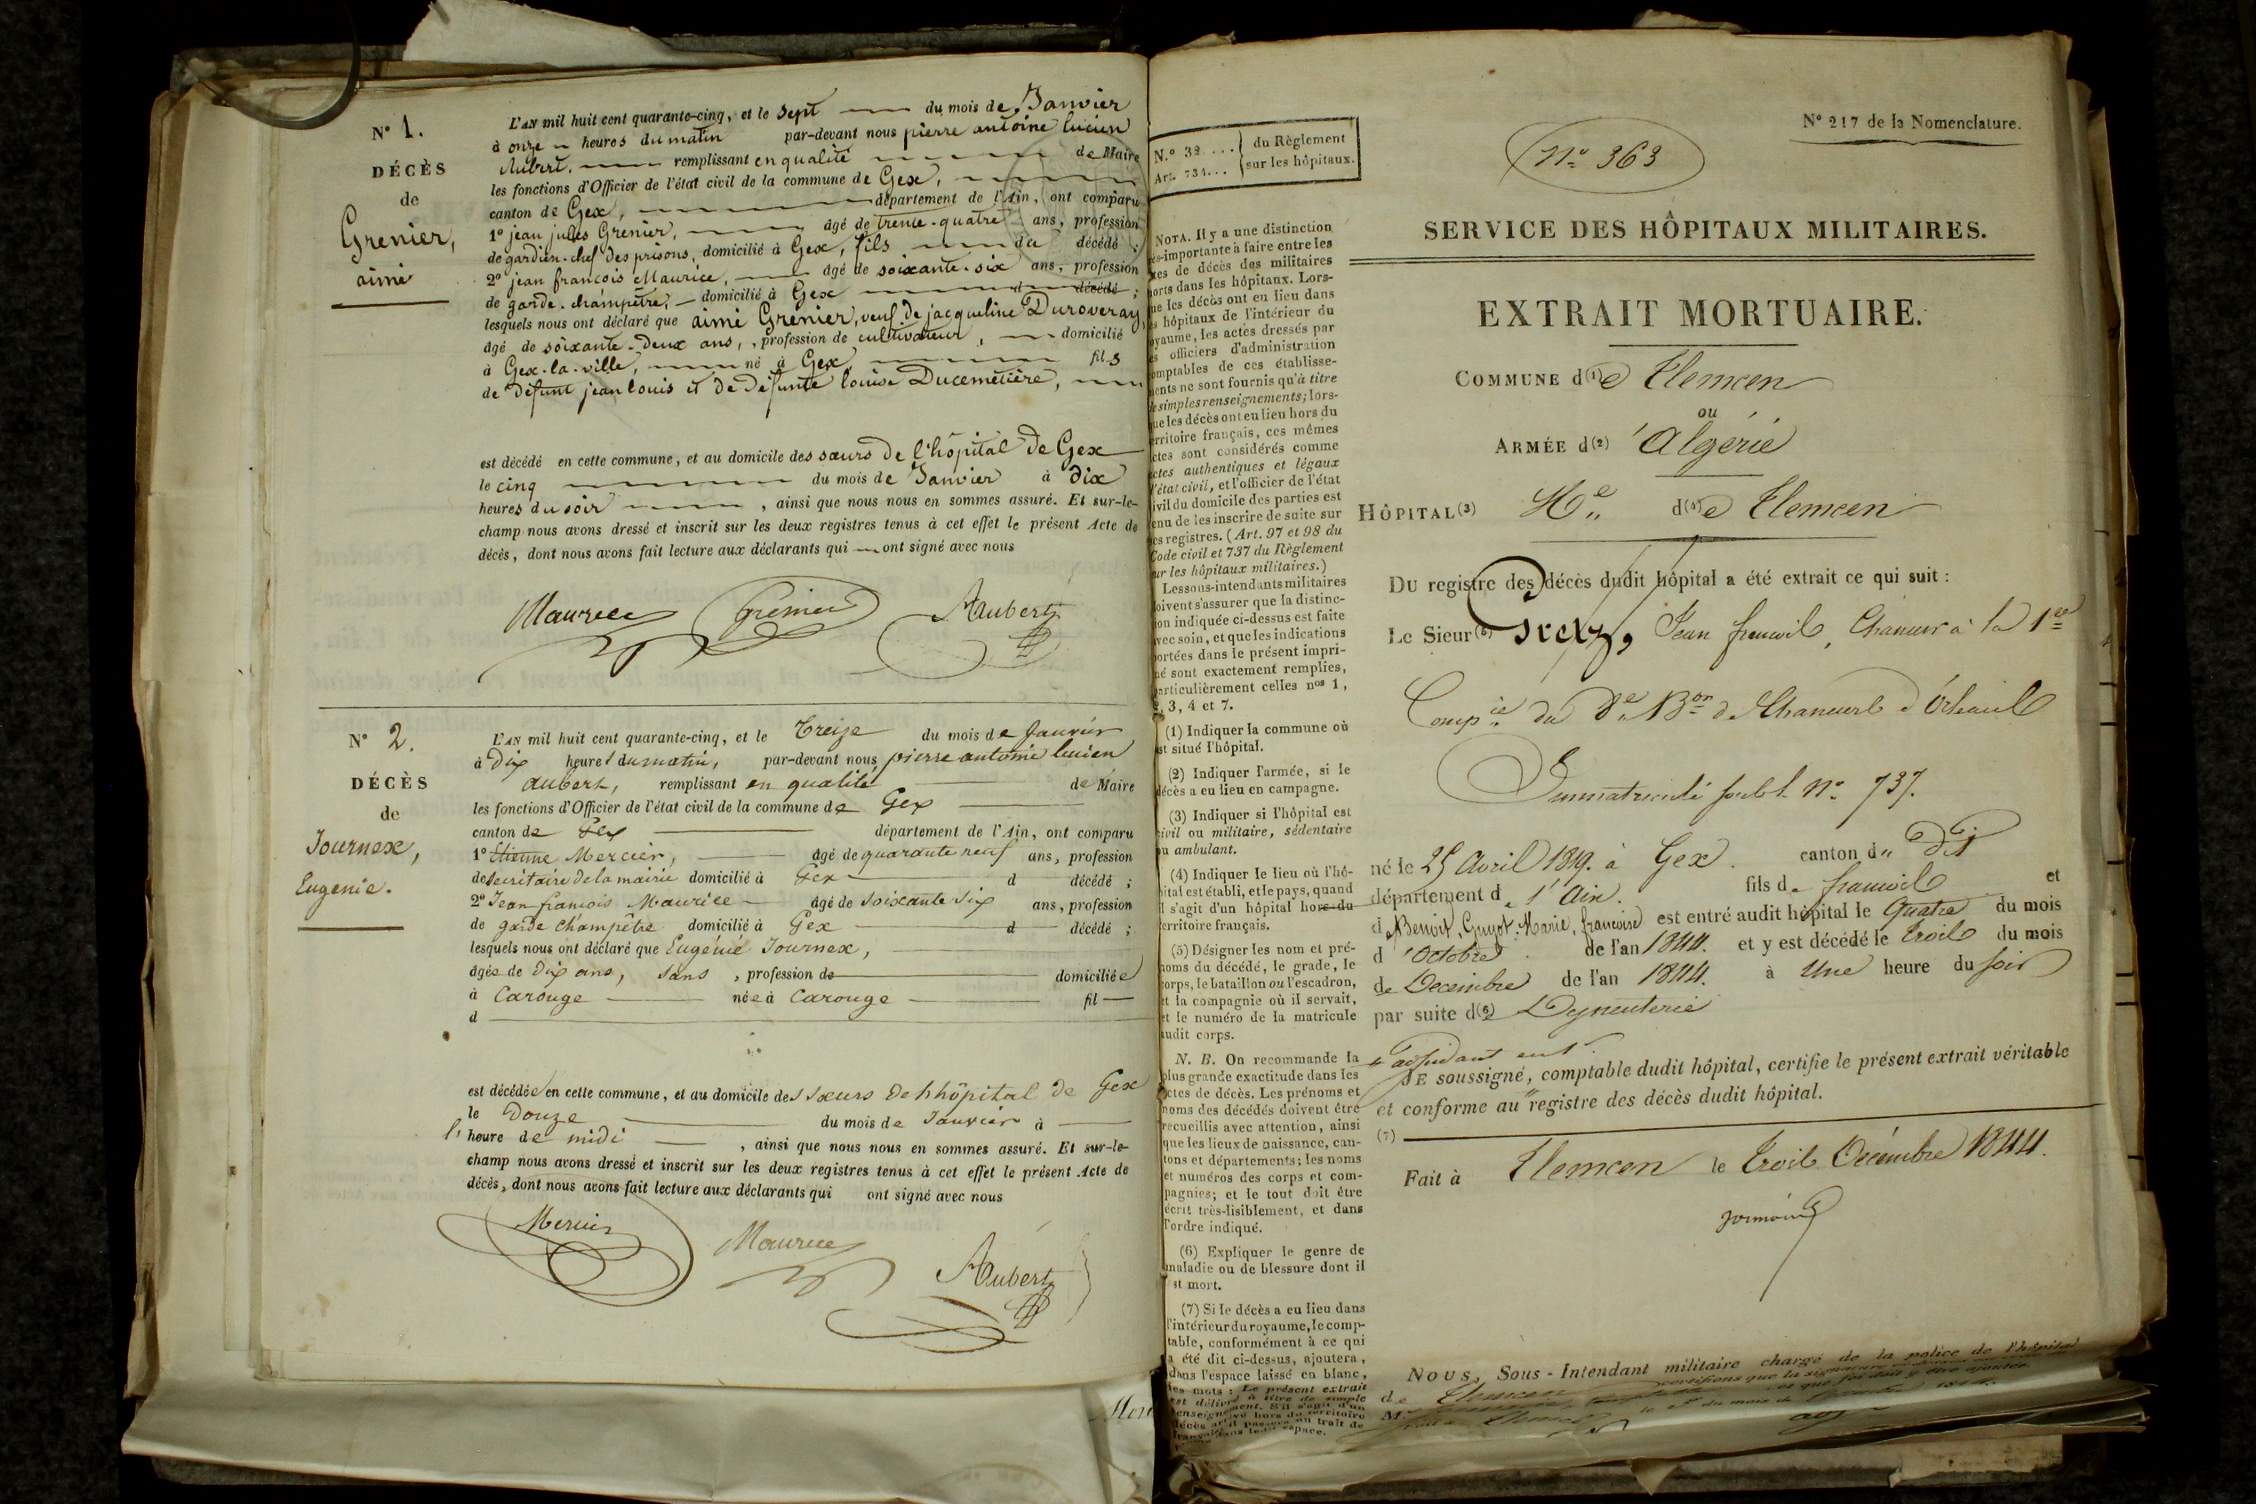 N° 1.
DÉCÈS
de
Grenier,
aimé
L'AN mil huit cent quarante-cinq, et le Sept du mois de Janvier
à onze heures du matin par-devant nous pierre antoine lucien
Aubert, remplissant en qualité de Maire
les fonctions d'Officier de l'état civil de la commune de Gex,
canton de Gex, département de l'Ain, ont comparu
1° jean jules Grenier, âgé de trente-quatre ans, profession
de gardien-chef des prisons, domicilié à Gex, fils du décédé ;
2° jean francois Maurice, âgé de soixante-six ans, profession
de garde-champêtre, domicilié à Gex d décédé ;
lesquels nous ont déclaré que aimé Grenier, veuf de jacqueline Duroveray,
âgé de soixante-deux ans, profession de cultivateur, domicilié
à Gex-la-ville, né à Gex, fils
de défunt jean louis et de défunte louise Ducemetière,
est décédé en cette commune, et au domicile des sœurs de l'hôpital de Gex
le cinq du mois de Janvier à dix
heures du soir, ainsi que nous nous en sommes assuré. Et sur-le-
champ nous avons dressé et inscrit sur les deux registres tenus à cet effet le présent Acte de
décès, dont nous avons fait lecture aux déclarants qui ont signé avec nous
Maurice Grenier Aubert
N° 2.
DÉCÈS
de
Journex,
Eugenie.
L'AN mil huit cent quarante-cinq, et le Treize du mois de Janvier
à Dix heures du matin, par-devant nous pierre antoine lucien
aubert, remplissant en qualité de Maire
les fonctions d'Officier de l'état civil de la commune de Gex
canton de Gex département de l'Ain, ont comparu
1° Etienne Mercier, âgé de quarante neuf ans, profession
de secrétaire de la mairie domicilié à Gex d décédé ;
2° Jean francois Maurice âgé de soixante six ans, profession
de garde champêtre domicilié à Gex d décédé ;
lesquels nous ont déclaré que Eugénie Journex,
âgée de Dix ans, sans, profession de domiciliée
à Carouge née à Carouge fil
d
est décédée en cette commune, et au domicile des sœurs de l'hôpital de Gex
le Douze du mois de Janvier à
l'heure de midi, ainsi que nous nous en sommes assuré. Et sur-le-
champ nous avons dressé et inscrit sur les deux registres tenus à cet effet le présent Acte de
décès, dont nous avons fait lecture aux déclarants qui ont signé avec nous
Mercier Maurice Aubert
N.° 32 ... du Règlement
Art. 731... sur les hôpitaux.
NOTA. Il y a une distinction
très-importante à faire entre les
actes de décès des militaires
morts dans les hôpitaux. Lors-
que les décès ont eu lieu dans
les hôpitaux de l'intérieur du
royaume, les actes dressés par
les officiers d'administration
comptables de ces établisse-
ments ne sont fournis qu'à titre
de simples renseignements; lors-
que les décès ont eu lieu hors du
territoire français, ces mêmes
actes sont considérés comme
actes authentiques et légaux
d'état civil, et l'officier de l'état
civil du domicile des parties est
tenu de les inscrire de suite sur
ses registres. (Art. 97 et 98 du
Code civil et 737 du Règlement
sur les hôpitaux militaires.)
Les sous-intendants militaires
doivent s'assurer que la distinc-
tion indiquée ci-dessus est faite
avec soin, et que les indications
portées dans le présent impri-
mé sont exactement remplies,
particulièrement celles nos 1,
2, 3, 4 et 7.
(1) Indiquer la commune où
est situé l'hôpital.
(2) Indiquer l'armée, si le
décès a eu lieu en campagne.
(3) Indiquer si l'hôpital est
civil ou militaire, sédentaire
ou ambulant.
(4) Indiquer le lieu où l'hô-
pital est établi, et le pays, quand
il s'agit d'un hôpital hors du
territoire français.
(5) Désigner les nom et pré-
noms du décédé, le grade, le
corps, le bataillon ou l'escadron,
et la compagnie où il servait,
et le numéro de la matricule
audit corps.
N. B. On recommande la
plus grande exactitude dans les
actes de décès. Les prénoms et
noms des décédés doivent être
recueillis avec attention, ainsi
que les lieux de naissance, can-
tons et départements; les noms
et numéros des corps et com-
pagnies; et le tout doit être
écrit très-lisiblement, et dans
l'ordre indiqué.
(6) Expliquer le genre de
maladie ou de blessure dont il
est mort.
(7) Si le décès a eu lieu dans
l'intérieur du royaume, le comp-
table, conformément à ce qui
a été dit ci-dessus, ajoutera,
dans l'espace laissé en blanc,
les mots : Le présent extrait
est délivré à titre de simple
renseignement. S'il s'agit d'un
N° 217 de la Nomenclature.
N° 363
SERVICE DES HÔPITAUX MILITAIRES.
EXTRAIT MORTUAIRE.
COMMUNE d(1)e Tlemcen
ou
ARMÉE d(2) 'Algérie
HÔPITAL (3) Mre d(4)e Tlemcen
Du registre des décès dudit hôpital a été extrait ce qui suit :
Le Sieur (5) Jean francois, Chasseur à la 1re
Compie du 8e Bon de Chasseurs d'Orléans
Immatriculé sous le N° 737.
né le 25 Avril 1819. à Gex. canton d dit
département de l'Ain. fils de francois et
de Benoit, Guyot, Marie, francoise est entré audit hôpital le Quatre du mois
d'Octobre de l'an 1844. et y est décédé le trois du mois
de Decembre de l'an 1844. à Une heure du soir
par suite d(6)e Dyssenterie
JE soussigné, comptable dudit hôpital, certifie le présent extrait véritable
et conforme au registre des décès dudit hôpital.
(7)
Fait à Tlemcen le trois Décembre 1844.
NOUS, Sous-Intendant militaire chargé de la police de l'hôpital
de Tlemcen certifions que la signature